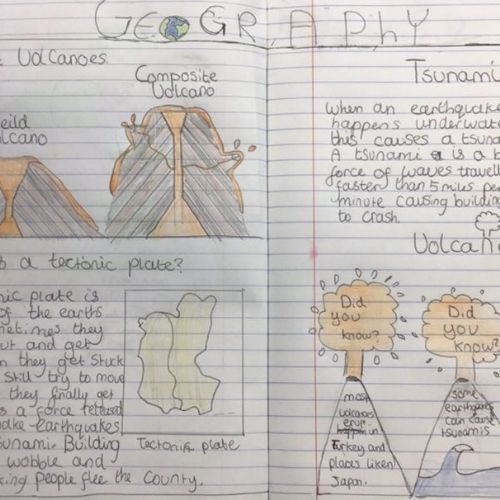 GEOGRAPHY
Volcanoes
Composite
Volcano
eild
lcano
a tectonic plate?
nic plate is
of the earths
metimes they
out and get
n they get stuck
still try to move
they finally get
s a force refered
uake earthquakes
sunami Building
wobble and
ing people flee the County.
Tectonic plate
Tsunami
When an earthquake
happens underwate
this causes a tsuna
A tsunami is a b
force of waves travell
faster than 5 miles pe
minute causing building
to crash.
Volcan
Did
you
know?
Did
you
know?
most
volcanoes
erupt
happen in
Turkey and
places like
Japan.
some
earthquakes
can cause
tsunamis